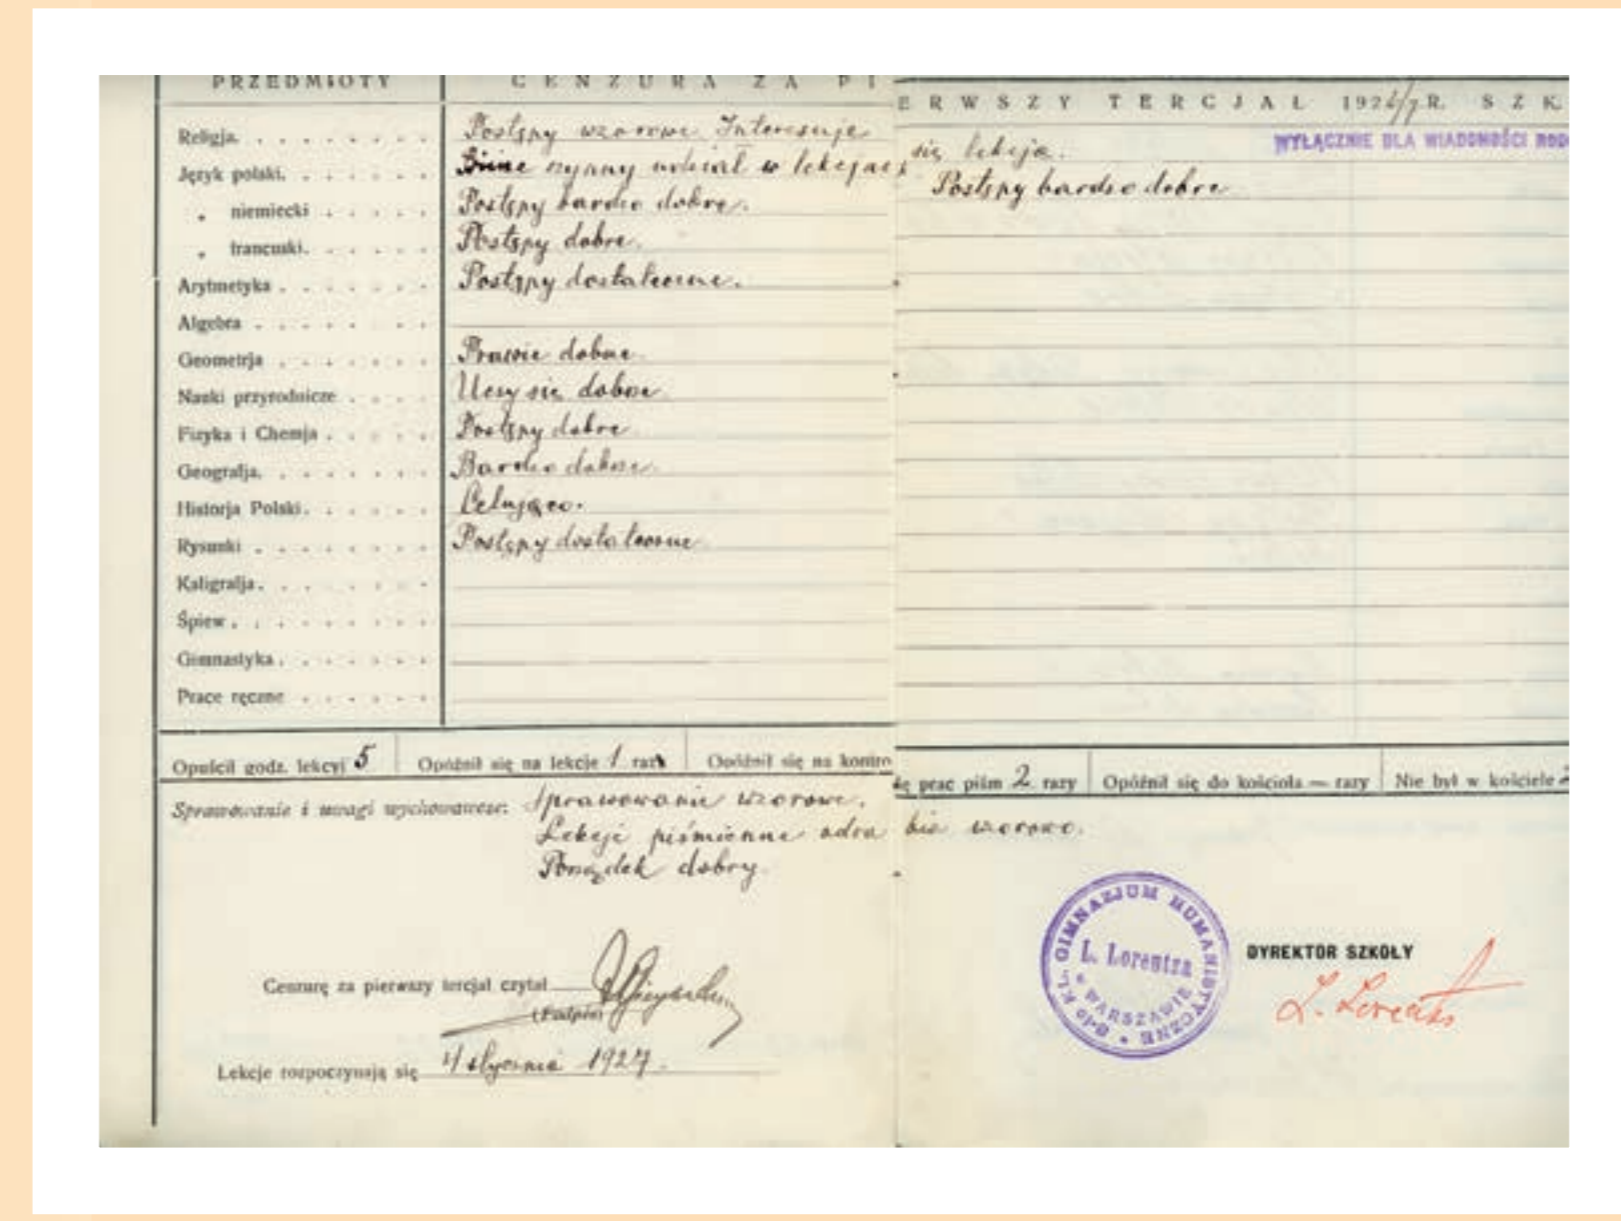 PRZEDMIOTY CENZURA ZA PIERWSZY TERCJAŁ 1926/7 R. SZK.
WYŁĄCZNIE DLA WIADOMOŚCI ROD
Religja. Postępy wzorowe. Interesuje się lekcją.
Język polski. Bierze czynny udział w lekcjach Postępy bardzo dobre
„ niemiecki Postępy bardzo dobre.
„ francuski. Postępy dobre.
Arytmetyka Postępy dostateczne.
Algebra
Geometrja Prawie dobre
Nauki przyrodnicze Uczy się dobrze
Fizyka i Chemja Postępy dobre
Geografja. Bardzo dobrze
Historja Polski. Celująco.
Rysunki Postępy dostateczne
Kaligrafja.
Śpiew
Gimnastyka
Prace ręczne
Opuścił godz. lekcyj 5 Opóźnił się na lekcje 1 raz Opóźnił się na kontro
kę prac piśm 2 razy Opóźnił się do kościoła — razy Nie był w kościele 2
Sprawowanie i uwagi wychowawcze: Sprawowanie wzorowe.
Lekcje piśmienne odrabia wzorowo.
Porządek dobry
Cenzurę za pierwszy tercjał czytał
(Podpis)
Lekcje rozpoczynają się 11 stycznia 1927.
8-io KL. GIMNAZJUM HUMANISTYCZNE
L. Lorentza
w WARSZAWIE
DYREKTOR SZKOŁY
L. Lorentz